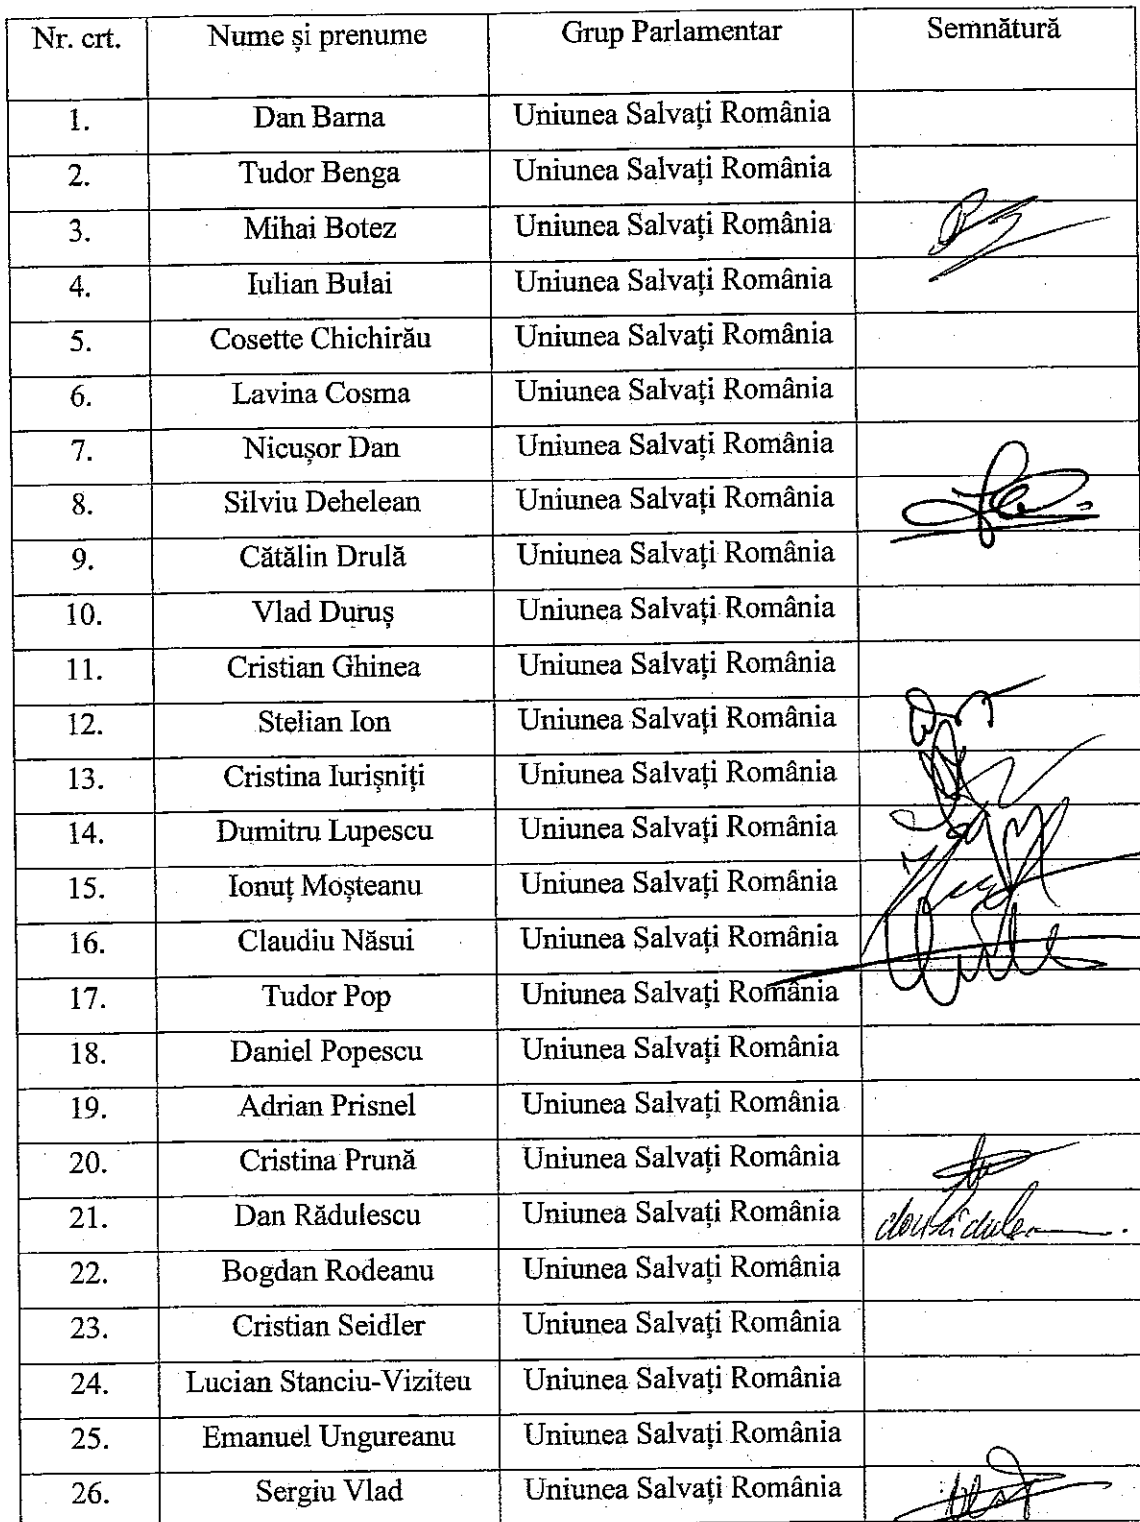 Nr. crt. Nume și prenume Grup Parlamentar Semnătură
1. Dan Barna Uniunea Salvați România
2. Tudor Benga Uniunea Salvați România
3. Mihai Botez Uniunea Salvați România
4. Iulian Bulai Uniunea Salvați România
5. Cosette Chichirău Uniunea Salvați România
6. Lavina Cosma Uniunea Salvați România
7. Nicușor Dan Uniunea Salvați România
8. Silviu Dehelean Uniunea Salvați România
9. Cătălin Drulă Uniunea Salvați România
10. Vlad Duruș Uniunea Salvați România
11. Cristian Ghinea Uniunea Salvați România
12. Stelian Ion Uniunea Salvați România
13. Cristina Iurișniți Uniunea Salvați România
14. Dumitru Lupescu Uniunea Salvați România
15. Ionuț Moșteanu Uniunea Salvați România
16. Claudiu Năsui Uniunea Salvați România
17. Tudor Pop Uniunea Salvați România
18. Daniel Popescu Uniunea Salvați România
19. Adrian Prisnel Uniunea Salvați România
20. Cristina Prună Uniunea Salvați România
21. Dan Rădulescu Uniunea Salvați România
22. Bogdan Rodeanu Uniunea Salvați România
23. Cristian Seidler Uniunea Salvați România
24. Lucian Stanciu-Viziteu Uniunea Salvați România
25. Emanuel Ungureanu Uniunea Salvați România
26. Sergiu Vlad Uniunea Salvați România